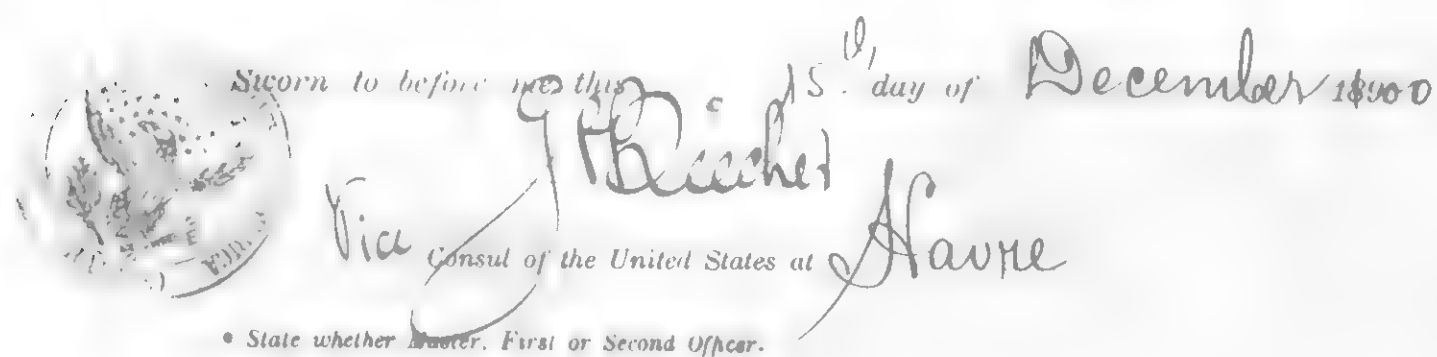 Sworn to before me this 15th day of December 1900
Vice Consul of the United States at Havre
• State whether Master, First or Second Officer.